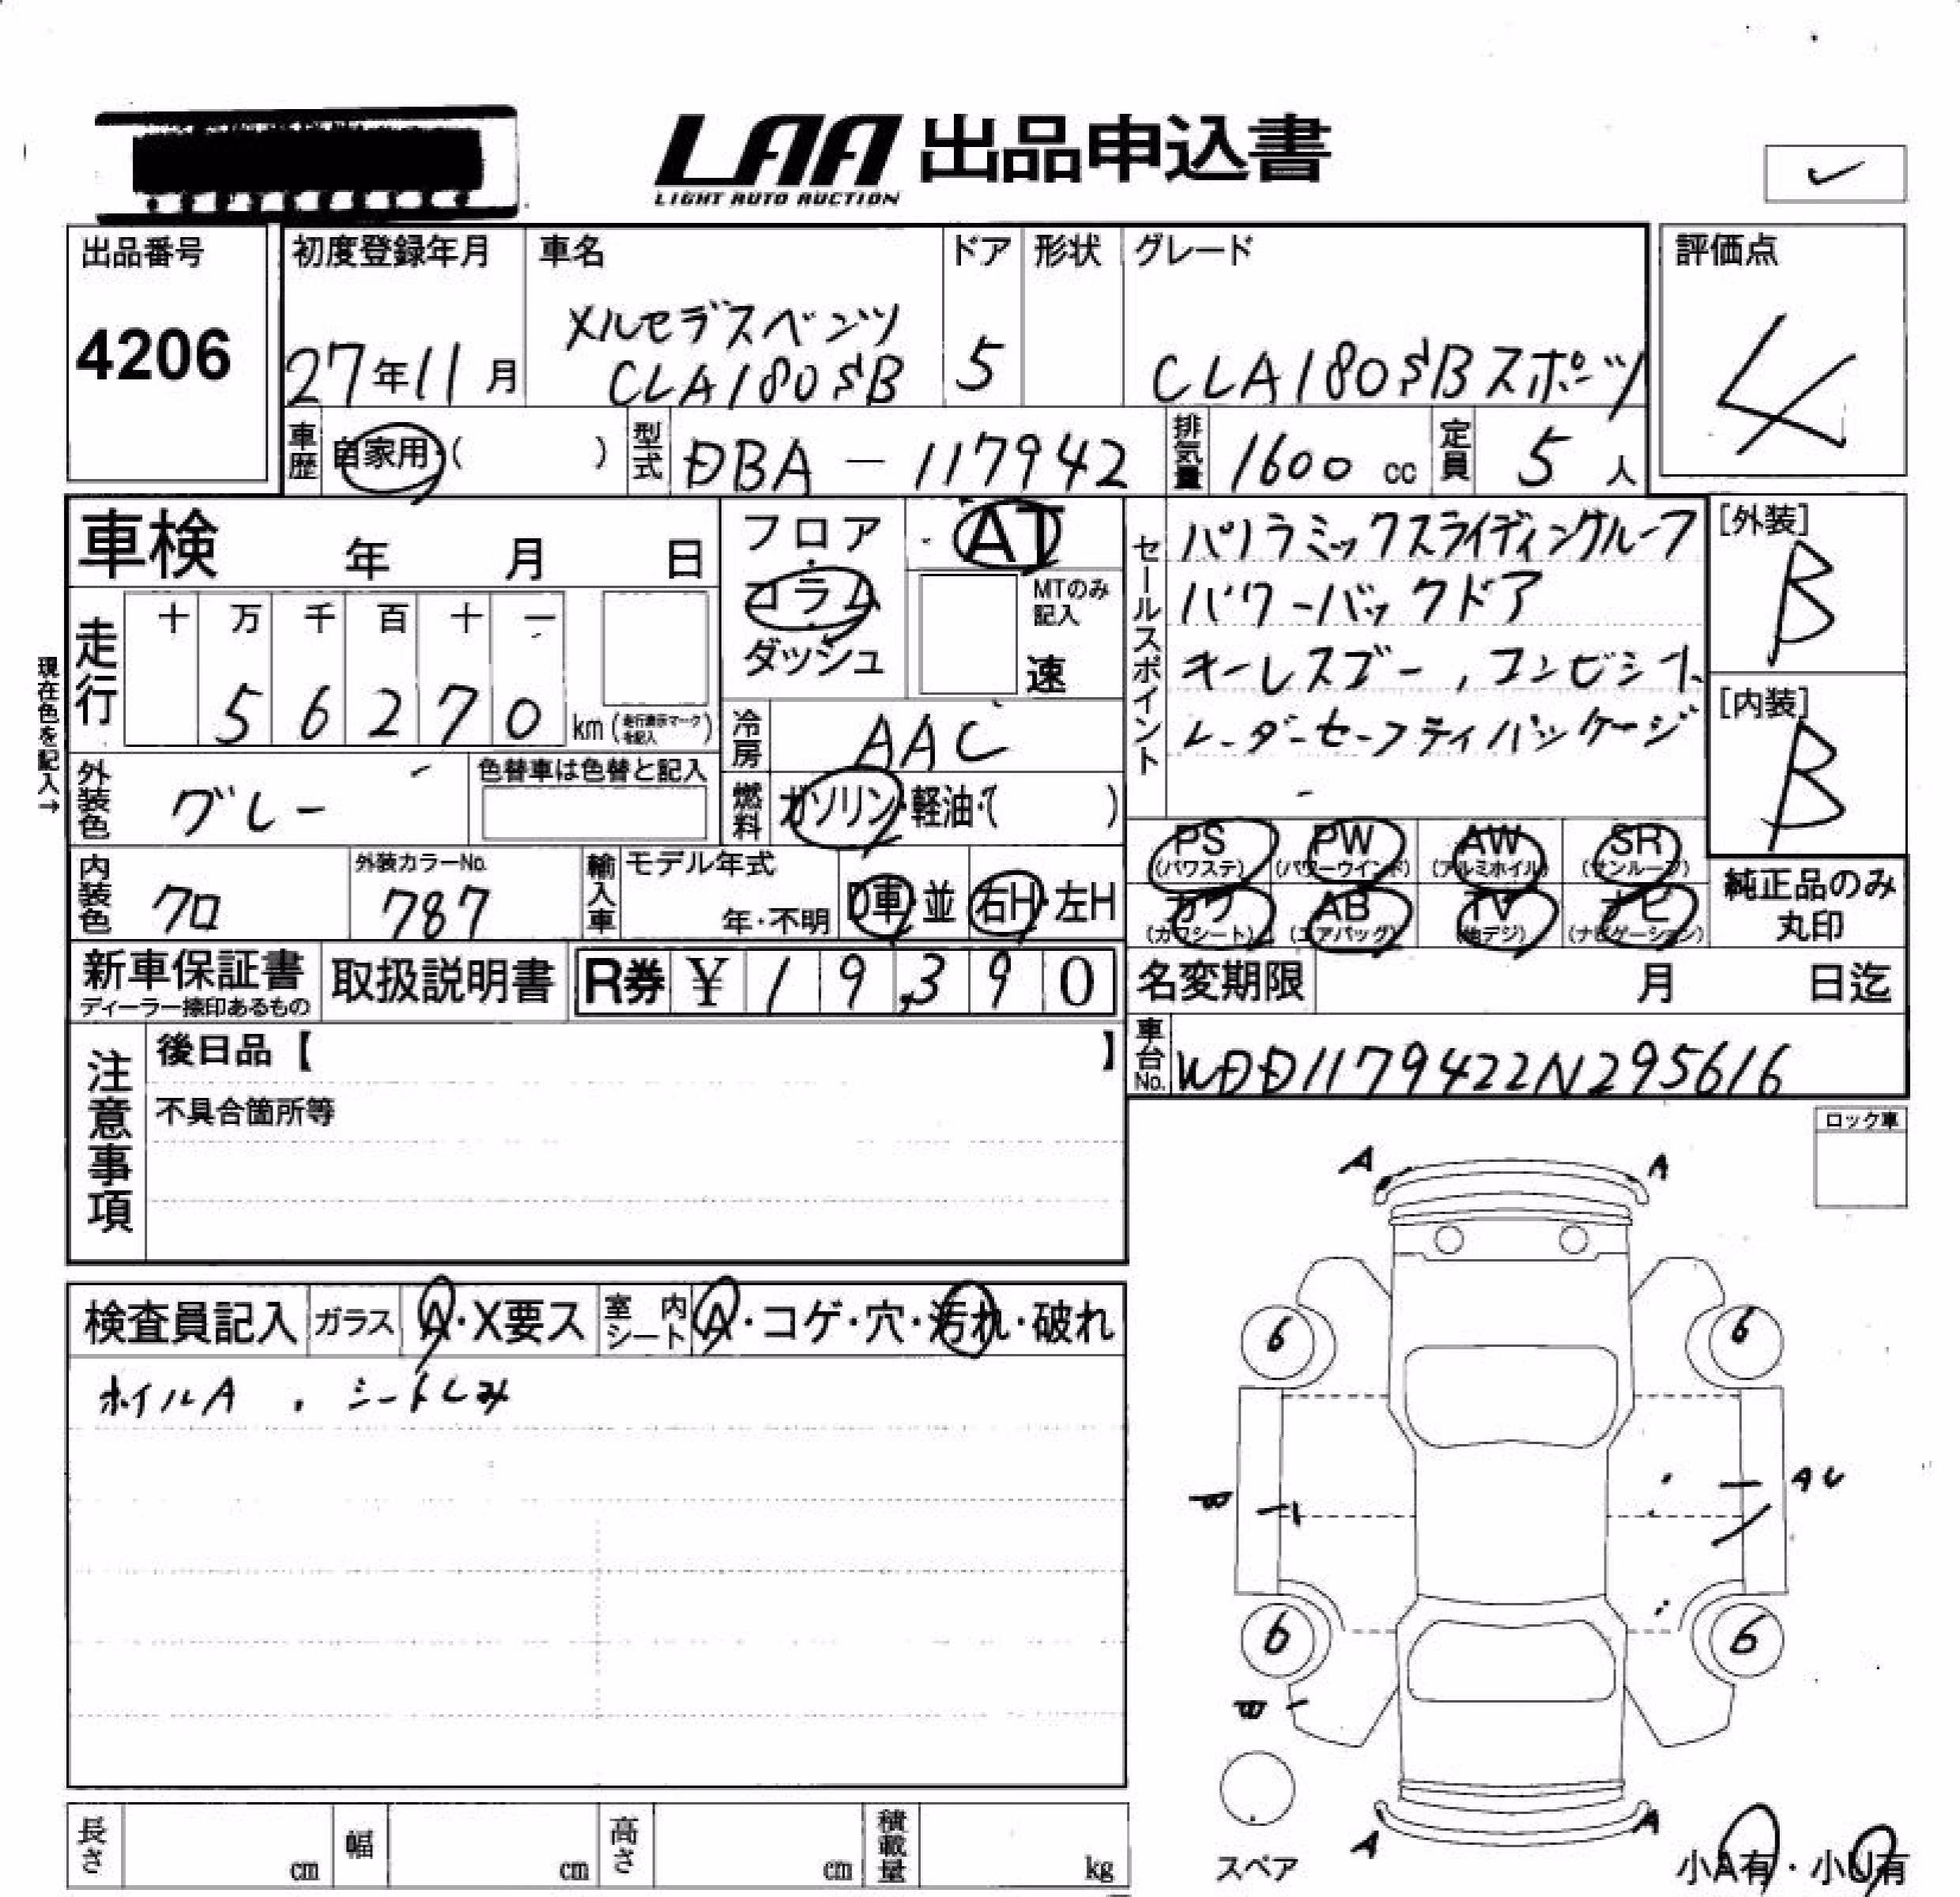 LAA 出品申込書
LIGHT AUTO AUCTION
出品番号
4206
初度登録年月
27年11月
車名
メルセデスベンツ
CLA180SB
ドア
5
形状
グレード
CLA180SBスポーツ
評価点
4
車歴
自家用・( )
型式
DBA-117942
排気量
1600 cc
定員
5 人
車検 年 月 日
フロア
コラム
ダッシュ
AT
MTのみ
記入
速
セールスポイント
パノラミックスライディングルーフ
パワーバックドア
キーレスゴー,コンビシート
レーダーセーフティパッケージ
[外装]
B
[内装]
B
現在色を記入→
走行
十 万 千 百 十 一
5 6 2 7 0 km (走行表示マークを記入)
冷房
AAC
外装色
グレー
色替車は色替と記入
燃料
ガソリン・軽油・( )
内装色
クロ
外装カラーNo.
787
輸入車
モデル年式
年・不明
D車・並
右H・左H
PS
(パワステ)
PW
(パワーウインド)
AW
(アルミホイル)
SR
(サンルーフ)
カワ
(カワシート)
AB
(エアバッグ)
TV
(地デジ)
ナビ
(ナビゲーション)
純正品のみ
丸印
新車保証書
ディーラー捺印あるもの
取扱説明書
R券 ¥ 19,390
名変期限 月 日迄
車台No.
WDD1179422N295616
注意事項
後日品【 】
不具合箇所等
ロック車
検査員記入
ガラス
A・X要ス
室内シート
A・コゲ・穴・汚れ・破れ
ホイルA . シートしみ
A A
6 6
B
A U
6 6
B
A A
スペア
小A有・小U有
長さ cm
幅 cm
高さ cm
積載量 kg